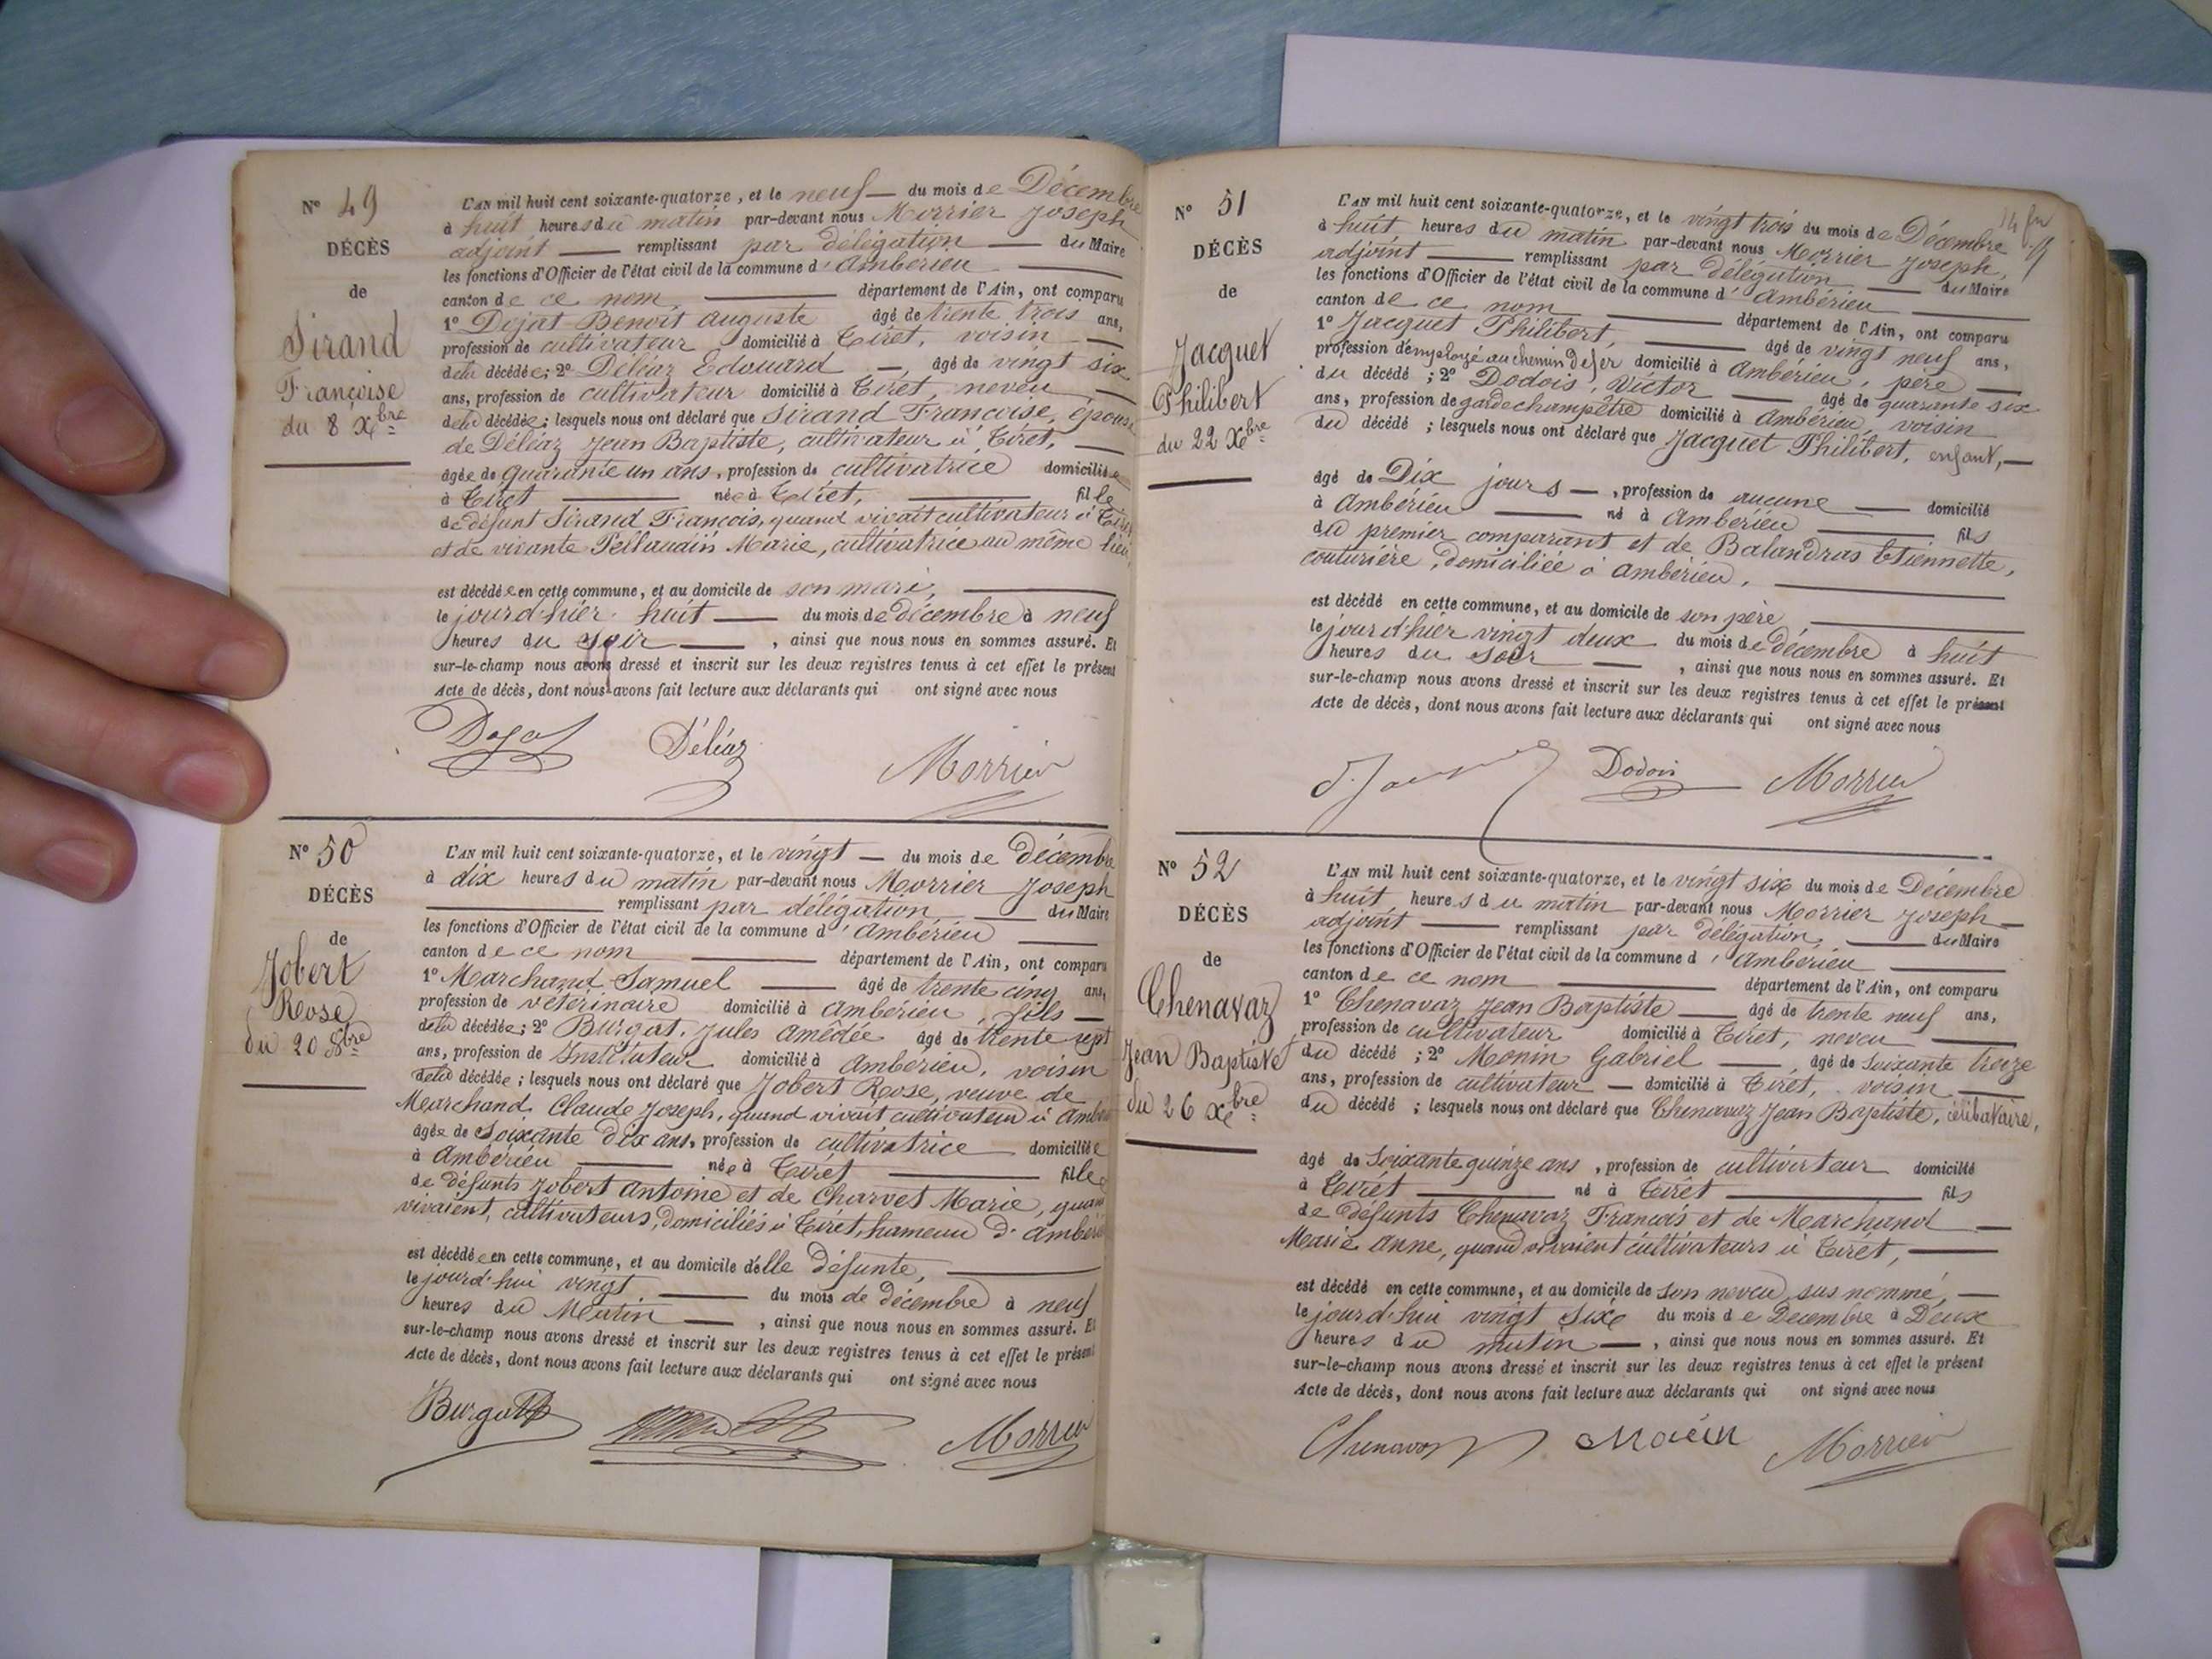 N° 49
DÉCÈS
de
Sirand
Françoise
du 8 Xbre
L'AN mil huit cent soixante-quatorze, et le neuf — du mois de Décembre
à huit heures du matin par-devant nous Morrier Joseph
adjoint — remplissant par délégation — du Maire
les fonctions d'Officier de l'état civil de la commune d'Ambérieu —
canton de ce nom — département de l'Ain, ont comparu
1° Dojat Benoit Auguste âgé de trente trois ans,
profession de cultivateur domicilié à Tiret, voisin —
de la décédée; 2° Déléaz Edouard —, âgé de vingt six
ans, profession de cultivateur domicilié à Tiret, neveu —
de la décédée; lesquels nous ont déclaré que Sirand Françoise, épouse
de Déléaz Jean Baptiste, cultivateur à Tiret, —
âgée de quarante un ans, profession de cultivatrice domiciliée
à Tiret — née à Tiret, — fille
de défunt Sirand François, quand vivait cultivateur à Tiret
et de vivante Pellaudin Marie, cultivatrice au même lieu,
est décédée en cette commune, et au domicile de son mari, —
le jourd'hier huit — du mois de Décembre à neuf
heures du soir —, ainsi que nous nous en sommes assuré. Et
sur-le-champ nous avons dressé et inscrit sur les deux registres tenus à cet effet le présent
Acte de décès, dont nous avons fait lecture aux déclarants qui ont signé avec nous
Dojat Déléaz Morrier
N° 50
DÉCÈS
de
Jobert
Rose
du 20 Xbre
L'AN mil huit cent soixante-quatorze, et le vingt — du mois de décembre
à dix heures du matin par-devant nous Morrier Joseph
— remplissant par délégation — du Maire
les fonctions d'Officier de l'état civil de la commune d'Ambérieu —
canton de ce nom — département de l'Ain, ont comparu
1° Marchand Samuel — âgé de trente cinq ans,
profession de vétérinaire domicilié à Ambérieu, fils —
de la décédée; 2° Burgat, Jules Amédée âgé de trente sept
ans, profession de Instituteur domicilié à Ambérieu, voisin
de la décédée; lesquels nous ont déclaré que Jobert Rose, veuve de
Marchand Claude Joseph, quand vivait cultivateur à Ambérieu
âgée de Soixante Dix ans, profession de cultivatrice domiciliée
à Ambérieu — née à Tiret — fille
de défunts Jobert Antoine et de Charvet Marie, quand
vivaient, cultivateurs, domiciliés à Tiret, hameau d'Ambérieu
est décédée en cette commune, et au domicile d'elle Défunte, —
le jourd'hui vingt — du mois de décembre à neuf
heures du Matin —, ainsi que nous nous en sommes assuré. Et
sur-le-champ nous avons dressé et inscrit sur les deux registres tenus à cet effet le présent
Acte de décès, dont nous avons fait lecture aux déclarants qui ont signé avec nous
Burgat Morrier
N° 51
DÉCÈS
de
Jacquet
Philibert
du 22 Xbre
L'AN mil huit cent soixante-quatorze, et le vingt trois du mois de Décembre
à huit heures du matin par-devant nous Morrier Joseph,
adjoint — remplissant par délégation — du Maire
les fonctions d'Officier de l'état civil de la commune d'Ambérieu
canton de ce nom — département de l'Ain, ont comparu
1° Jacquet Philibert, — âgé de vingt neuf ans,
profession d'employé au chemin de fer domicilié à Ambérieu, père —
du décédé; 2° Dodois, Victor — âgé de quarante six
ans, profession de garde champêtre domicilié à Ambérieu, voisin
du décédé; lesquels nous ont déclaré que Jacquet Philibert, enfant, —
âgé de Dix jours —, profession de aucune — domicilié
à Ambérieu — né à Ambérieu — fils
du premier comparant et de Balandras Etiennette,
couturière, domiciliée à Ambérieu, —
est décédé en cette commune, et au domicile de son père —
le jourd'hier vingt deux du mois de Décembre à huit
heures du soir —, ainsi que nous nous en sommes assuré. Et
sur-le-champ nous avons dressé et inscrit sur les deux registres tenus à cet effet le présent
Acte de décès, dont nous avons fait lecture aux déclarants qui ont signé avec nous
Dodois Morrier
N° 52
DÉCÈS
de
Chenavaz
Jean Baptiste
du 26 Xbre
L'AN mil huit cent soixante-quatorze, et le vingt six du mois de Décembre
à huit heures du matin par-devant nous Morrier Joseph —
adjoint — remplissant par délégation, — du Maire
les fonctions d'Officier de l'état civil de la commune d'Ambérieu —
canton de ce nom — département de l'Ain, ont comparu
1° Chenavaz Jean Baptiste — âgé de trente neuf ans,
profession de cultivateur domicilié à Tiret, neveu —
du décédé; 2° Monin Gabriel —, âgé de Soixante treize
ans, profession de cultivateur — domicilié à Tiret, voisin —
du décédé; lesquels nous ont déclaré que Chenavaz Jean Baptiste, célibataire,
âgé de Soixante quinze ans, profession de cultivateur domicilié
à Tiret — né à Tiret — fils
de défunts Chenavaz François et de Marchand —
Marie Anne, quand vivaient cultivateurs à Tiret, —
est décédé en cette commune, et au domicile de son neveu sus nommé, —
le jourd'hui vingt Six du mois de Décembre à Deux
heures du matin —, ainsi que nous nous en sommes assuré. Et
sur-le-champ nous avons dressé et inscrit sur les deux registres tenus à cet effet le présent
Acte de décès, dont nous avons fait lecture aux déclarants qui ont signé avec nous
Chenavaz Monin Morrier